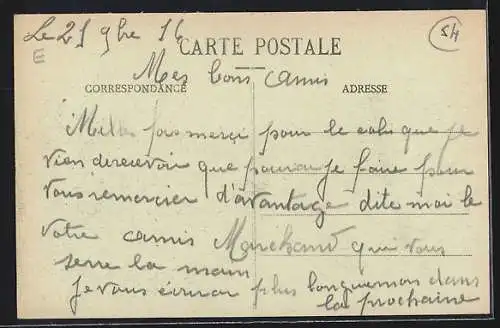 Le 21 9bre 16
54
E
CARTE POSTALE
Mes bons amis
CORRESPONDANCE
ADRESSE
Mille fois merçi pour le colis que je
vien derecevoir que pourai je faire pour
vous remercier d'avantage dite moi le
Votre amis Marchand qui vous
serre la main
Je vous écrirai plus longuemon dans
la prochaine